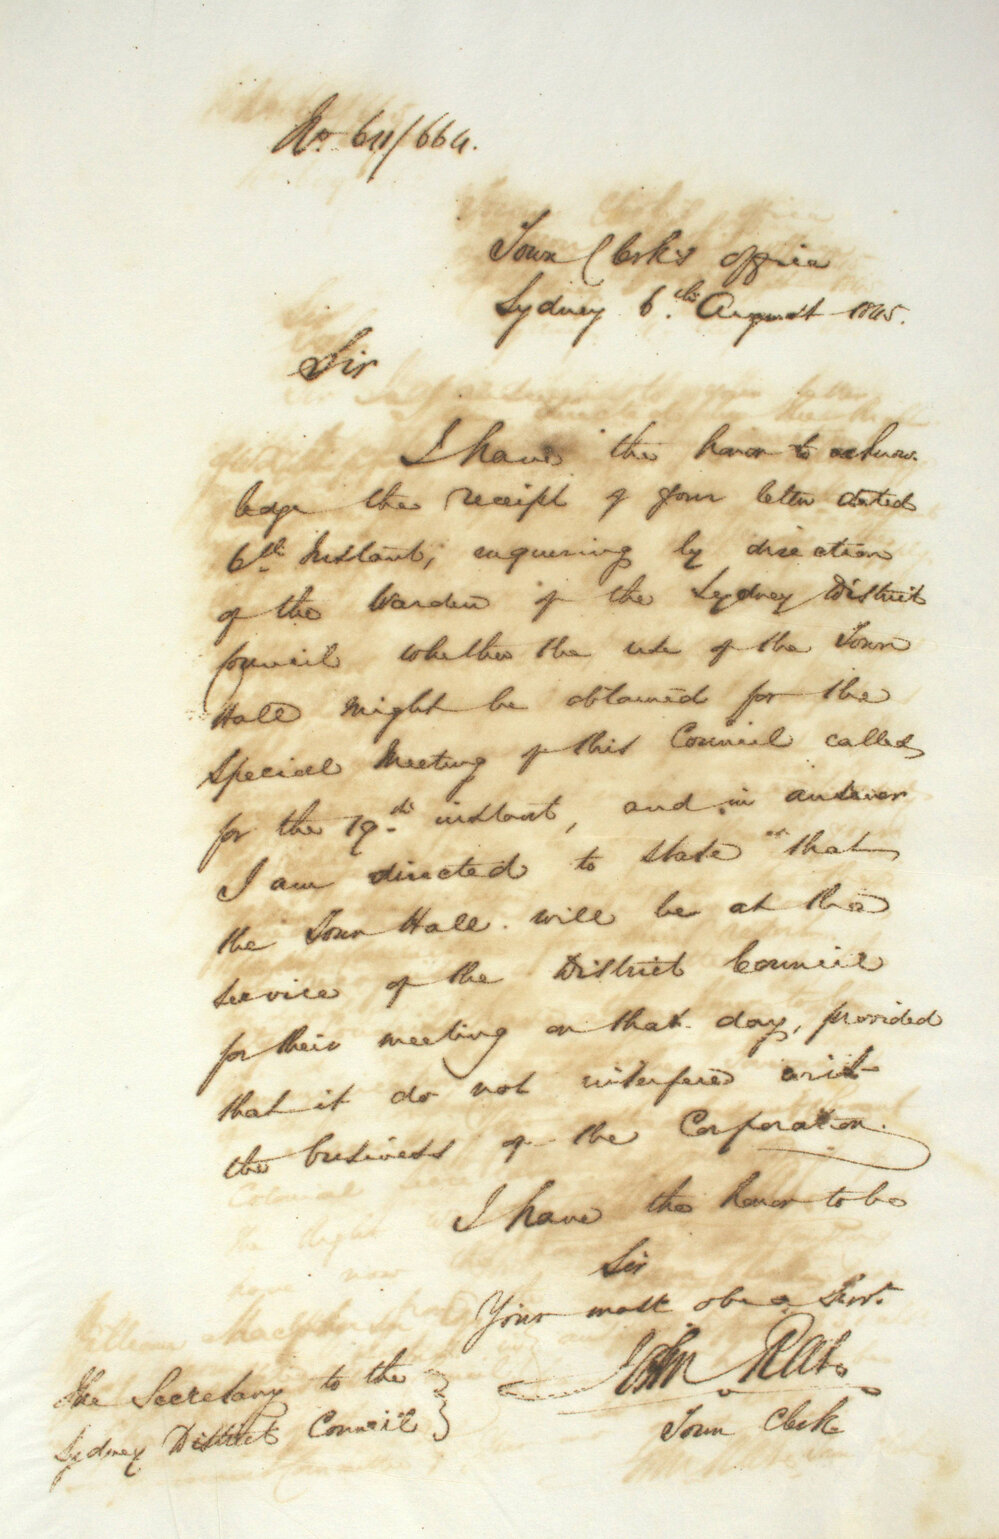 No 64/664.
Town Clerk's office
Sydney 6.th August 1845.
Sir
I have the honor to acknow
ledge the receipt of your letter dated
6th Instant, enquiring by direction
of the Warden of the Sydney District
Council whether the use of the Town
Hall might be obtained for the
Special Meeting of this Council called
for the 19.th instant, and in answer
I am directed to state that
the Town Hall will be at the
service of the District Council
for their meeting on that day, provided
that it do not interfere with
the business of the Corporation.
I have the honor to be
Sir
Your most obed. Servt.
John Rae
Town Clerk
The Secretary to the
Sydney District Council